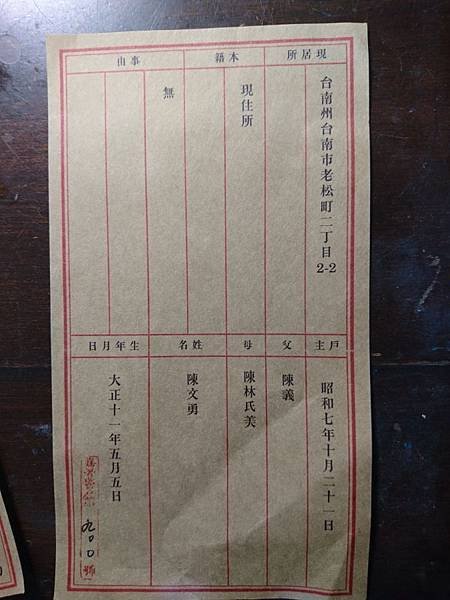 現居所
台南州台南市老松町二丁目2-2
本籍
現住所
事由
無
戶主
昭和七年十月二十一日
父
陳義
母
陳林氏美
姓名
陳文勇
生年月日
大正十一年五月五日
九〇〇號